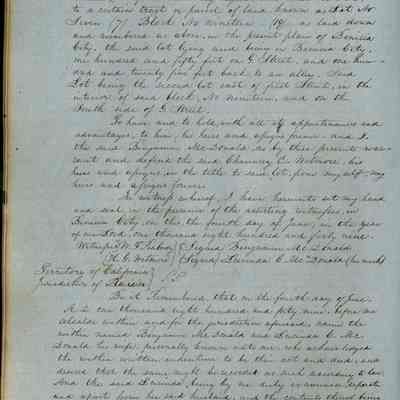 to a certain tract or parcel of land known as Lot No
Seven (7) Block No nineteen (19) as laid down
and numbered as above in the present plan of Benicia
City. the said lot lying and being in Benicia City.
one hundred and fifty feet on G. Street, and one hun-
dred and twenty five feet back to an alley. Said
Lot being the second lot east of first Street, in the
interior of said block, No nineteen, and on the
South side of G. Street.
To have and to hold, with all appurtenances and
advantages, to him, his heirs and assigns forever. and I
the said Benjamin McDonald do by these presents war-
rant and defend the said Chauncy C. Wetmore, his
heirs and assigns, in the title to said lot, from myself, my
heirs and assigns forever.
In witness whereof, I have hereunto set my hand
and seal in the presence of the attesting witnesses, in
Benicia City, on this the fourth day of June, in the year
of our Lord, one thousand eight hundred and forty nine.
Witnesses W. F. Benjamin McDonald
H. G. Lucinda C. McDonald (her mark)
Territory of California
Jurisdiction of
Be it Remembered, that on the fourth day of June
A.D. one thousand eight hundred and forty nine. before me
Alcalde within and for the jurisdiction aforesaid, came the
within named Benjamin McDonald and Lucinda C. Mc
Donald his wife, personally known unto me, who acknowledged
the within written indenture to be their act and deed, and
desired that the same might be recorded as such according to law.
And the said Lucinda being by me duly examined, separate
and apart from her said husband, and the contents thereof being